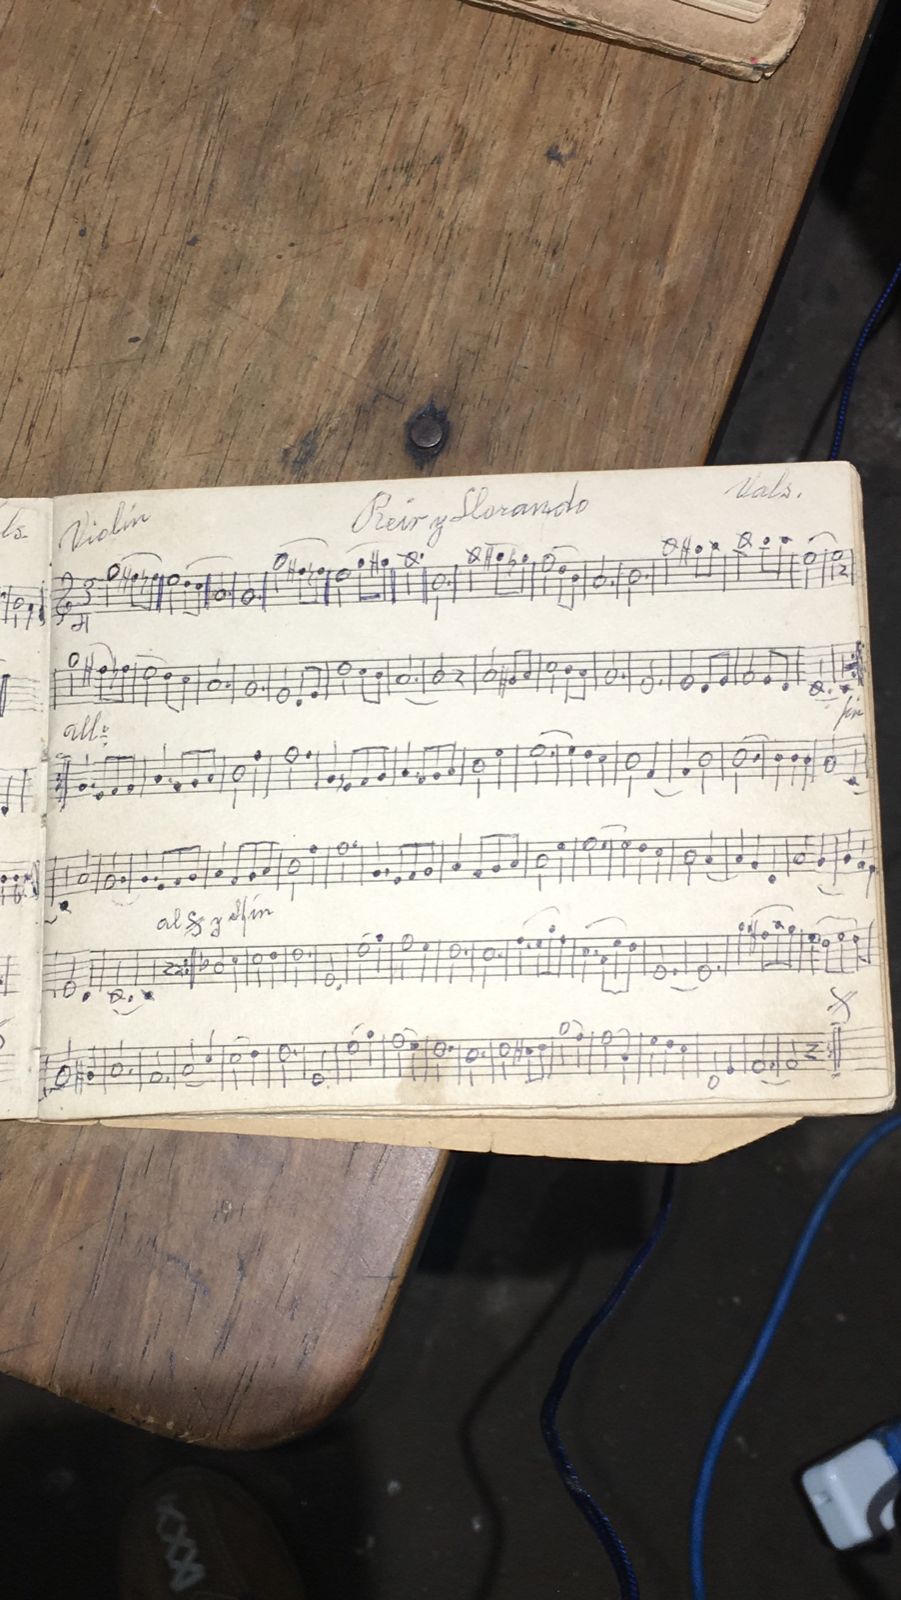 ls.
Violin
Reir y Llorando
Vals.
fin
all:
al 𝄋 y Sfin